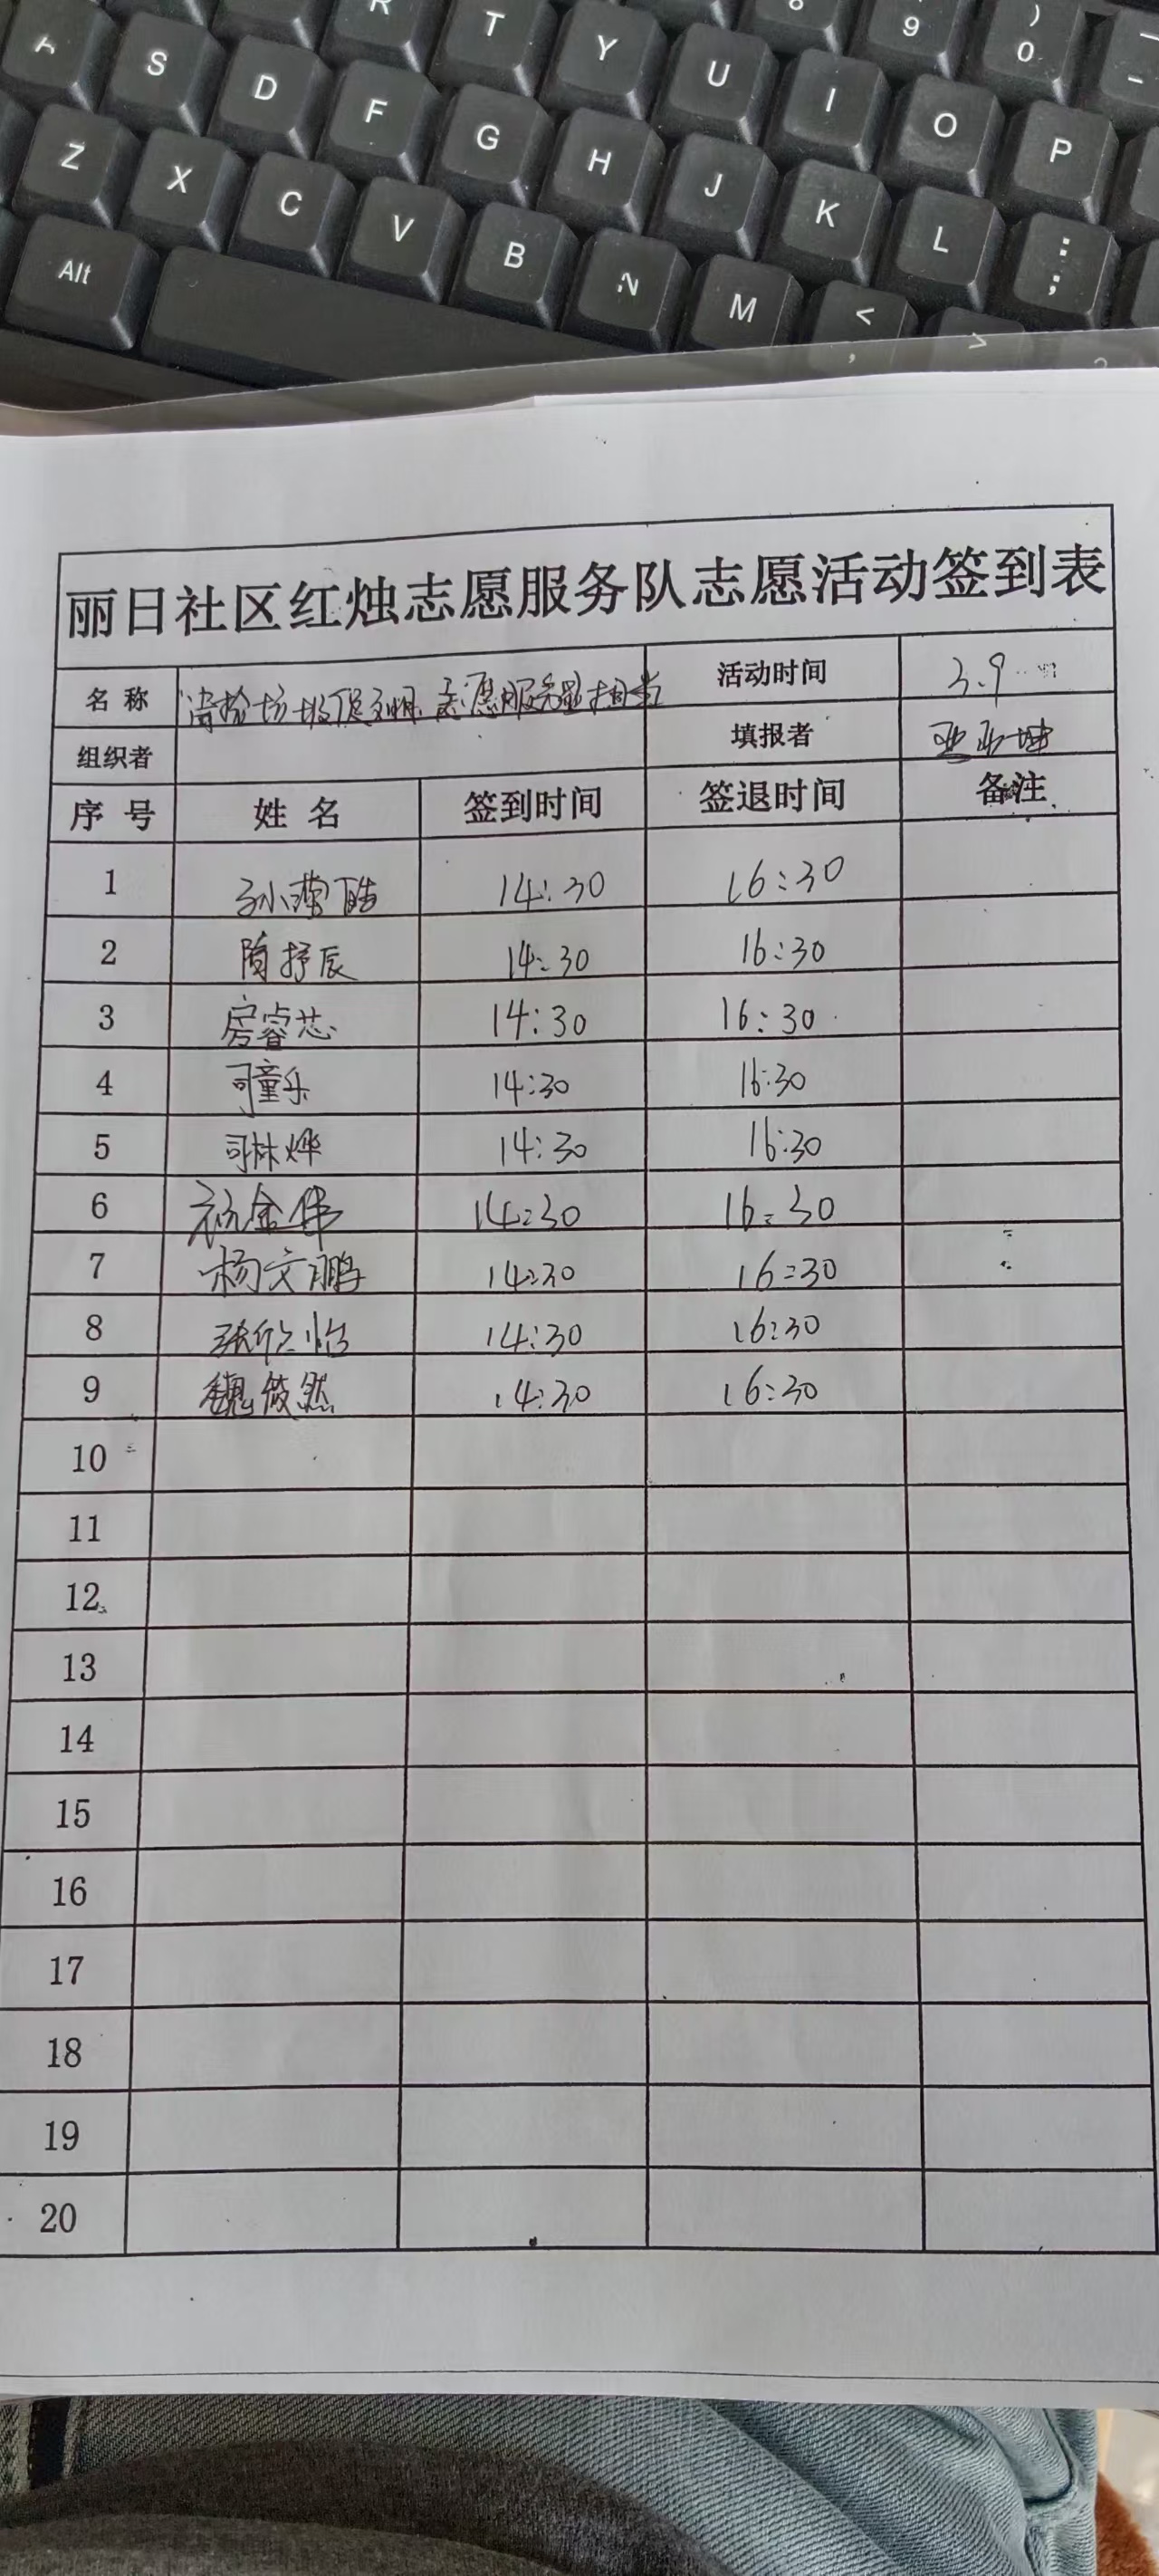 R T Y U I 9 ) 0 _ -
A S D F G H J K L O P : ;
Z X C V B N M < , >
Alt
丽日社区红烛志愿服务队志愿活动签到表
名 称 清捡垃圾促文明 志愿服务 活动时间 3.9
组织者 填报者
序 号 姓 名 签到时间 签退时间 备注
1 14:30 16:30
2 隋抒辰 14:30 16:30
3 房睿芯 14:30 16:30
4 司童乐 14:30 16:30
5 司林烨 14:30 16:30
6 祝金伟 14:30 16:30
7 杨文鹏 14:30 16:30
8 张欣怡 14:30 16:30
9 魏筱然 14:30 16:30
10
11
12
13
14
15
16
17
18
19
20